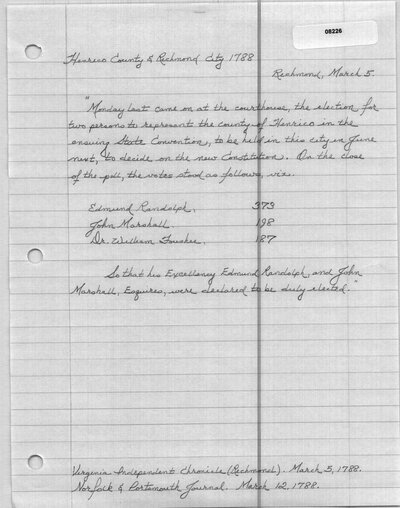 08226
Henrico County & Richmond City 1788
Richmond, March 5.
"Monday last came on at the courthouse, the election for
two persons to represent the county of Henrico in the
ensuing State Convention, to be held in this city in June
next, to decide on the new Constitution. On the close
of the poll, the votes stood as follows, viz.
Edmund Randolph, 373
John Marshall 198
Dr. William Foushee, 187
So that his Excellency Edmund Randolph, and John
Marshall, Esquires, were declared to be duly elected."
Virginia Independent Chronicle (Richmond). March 5, 1788.
Norfolk & Portsmouth Journal. March 12, 1788.